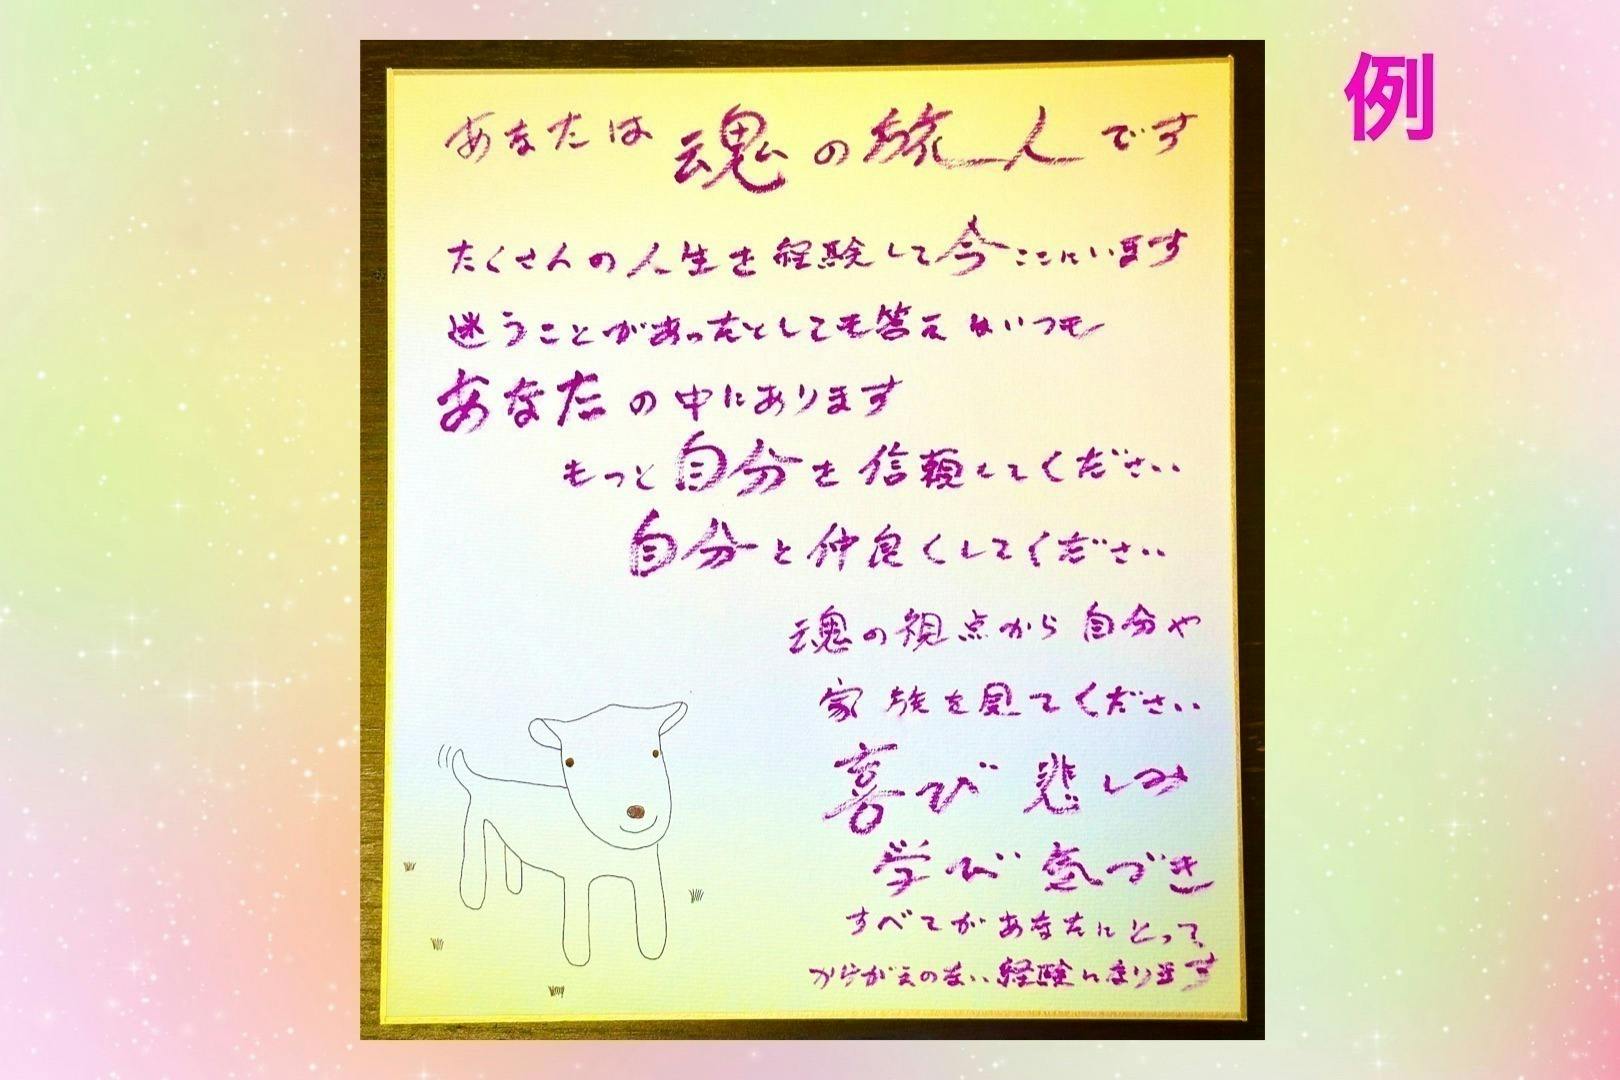 例
あなたは魂の旅人です
たくさんの人生を経験して今ここにいます
迷うことがあったとしても答えはいつも
あなたの中にあります
もっと自分を信頼してください
自分と仲良くしてください
魂の視点から自分や
家族を見てください
喜び 悲しみ
学び 気づき
すべてがあなたにとって
かけがえのない経験になります